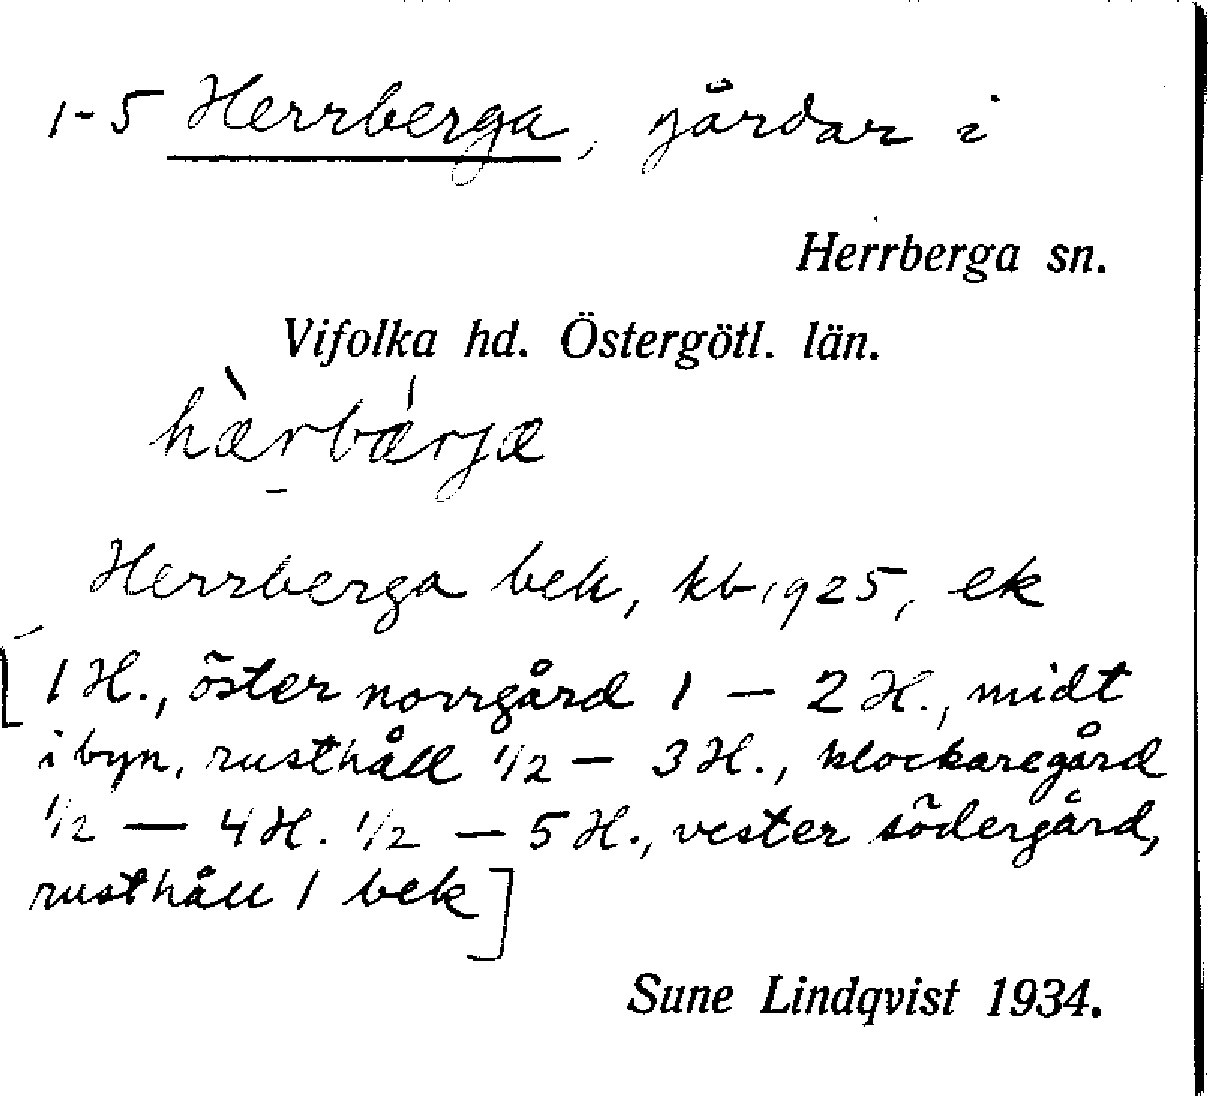 1-5 Herrberga, gårdar i
Herrberga sn.
Vifolka hd. Östergötl. län.
hæ̀rbǽrjæ
Herrberga bek, kb 1925, ek
[1 H., öster norrgård 1 — 2 H., midt
i byn, rusthåll 1/2 — 3 H., klockaregård
1/2 — 4 H. 1/2 — 5 H., vester södergård,
rusthåll 1 bek]
Sune Lindqvist 1934.